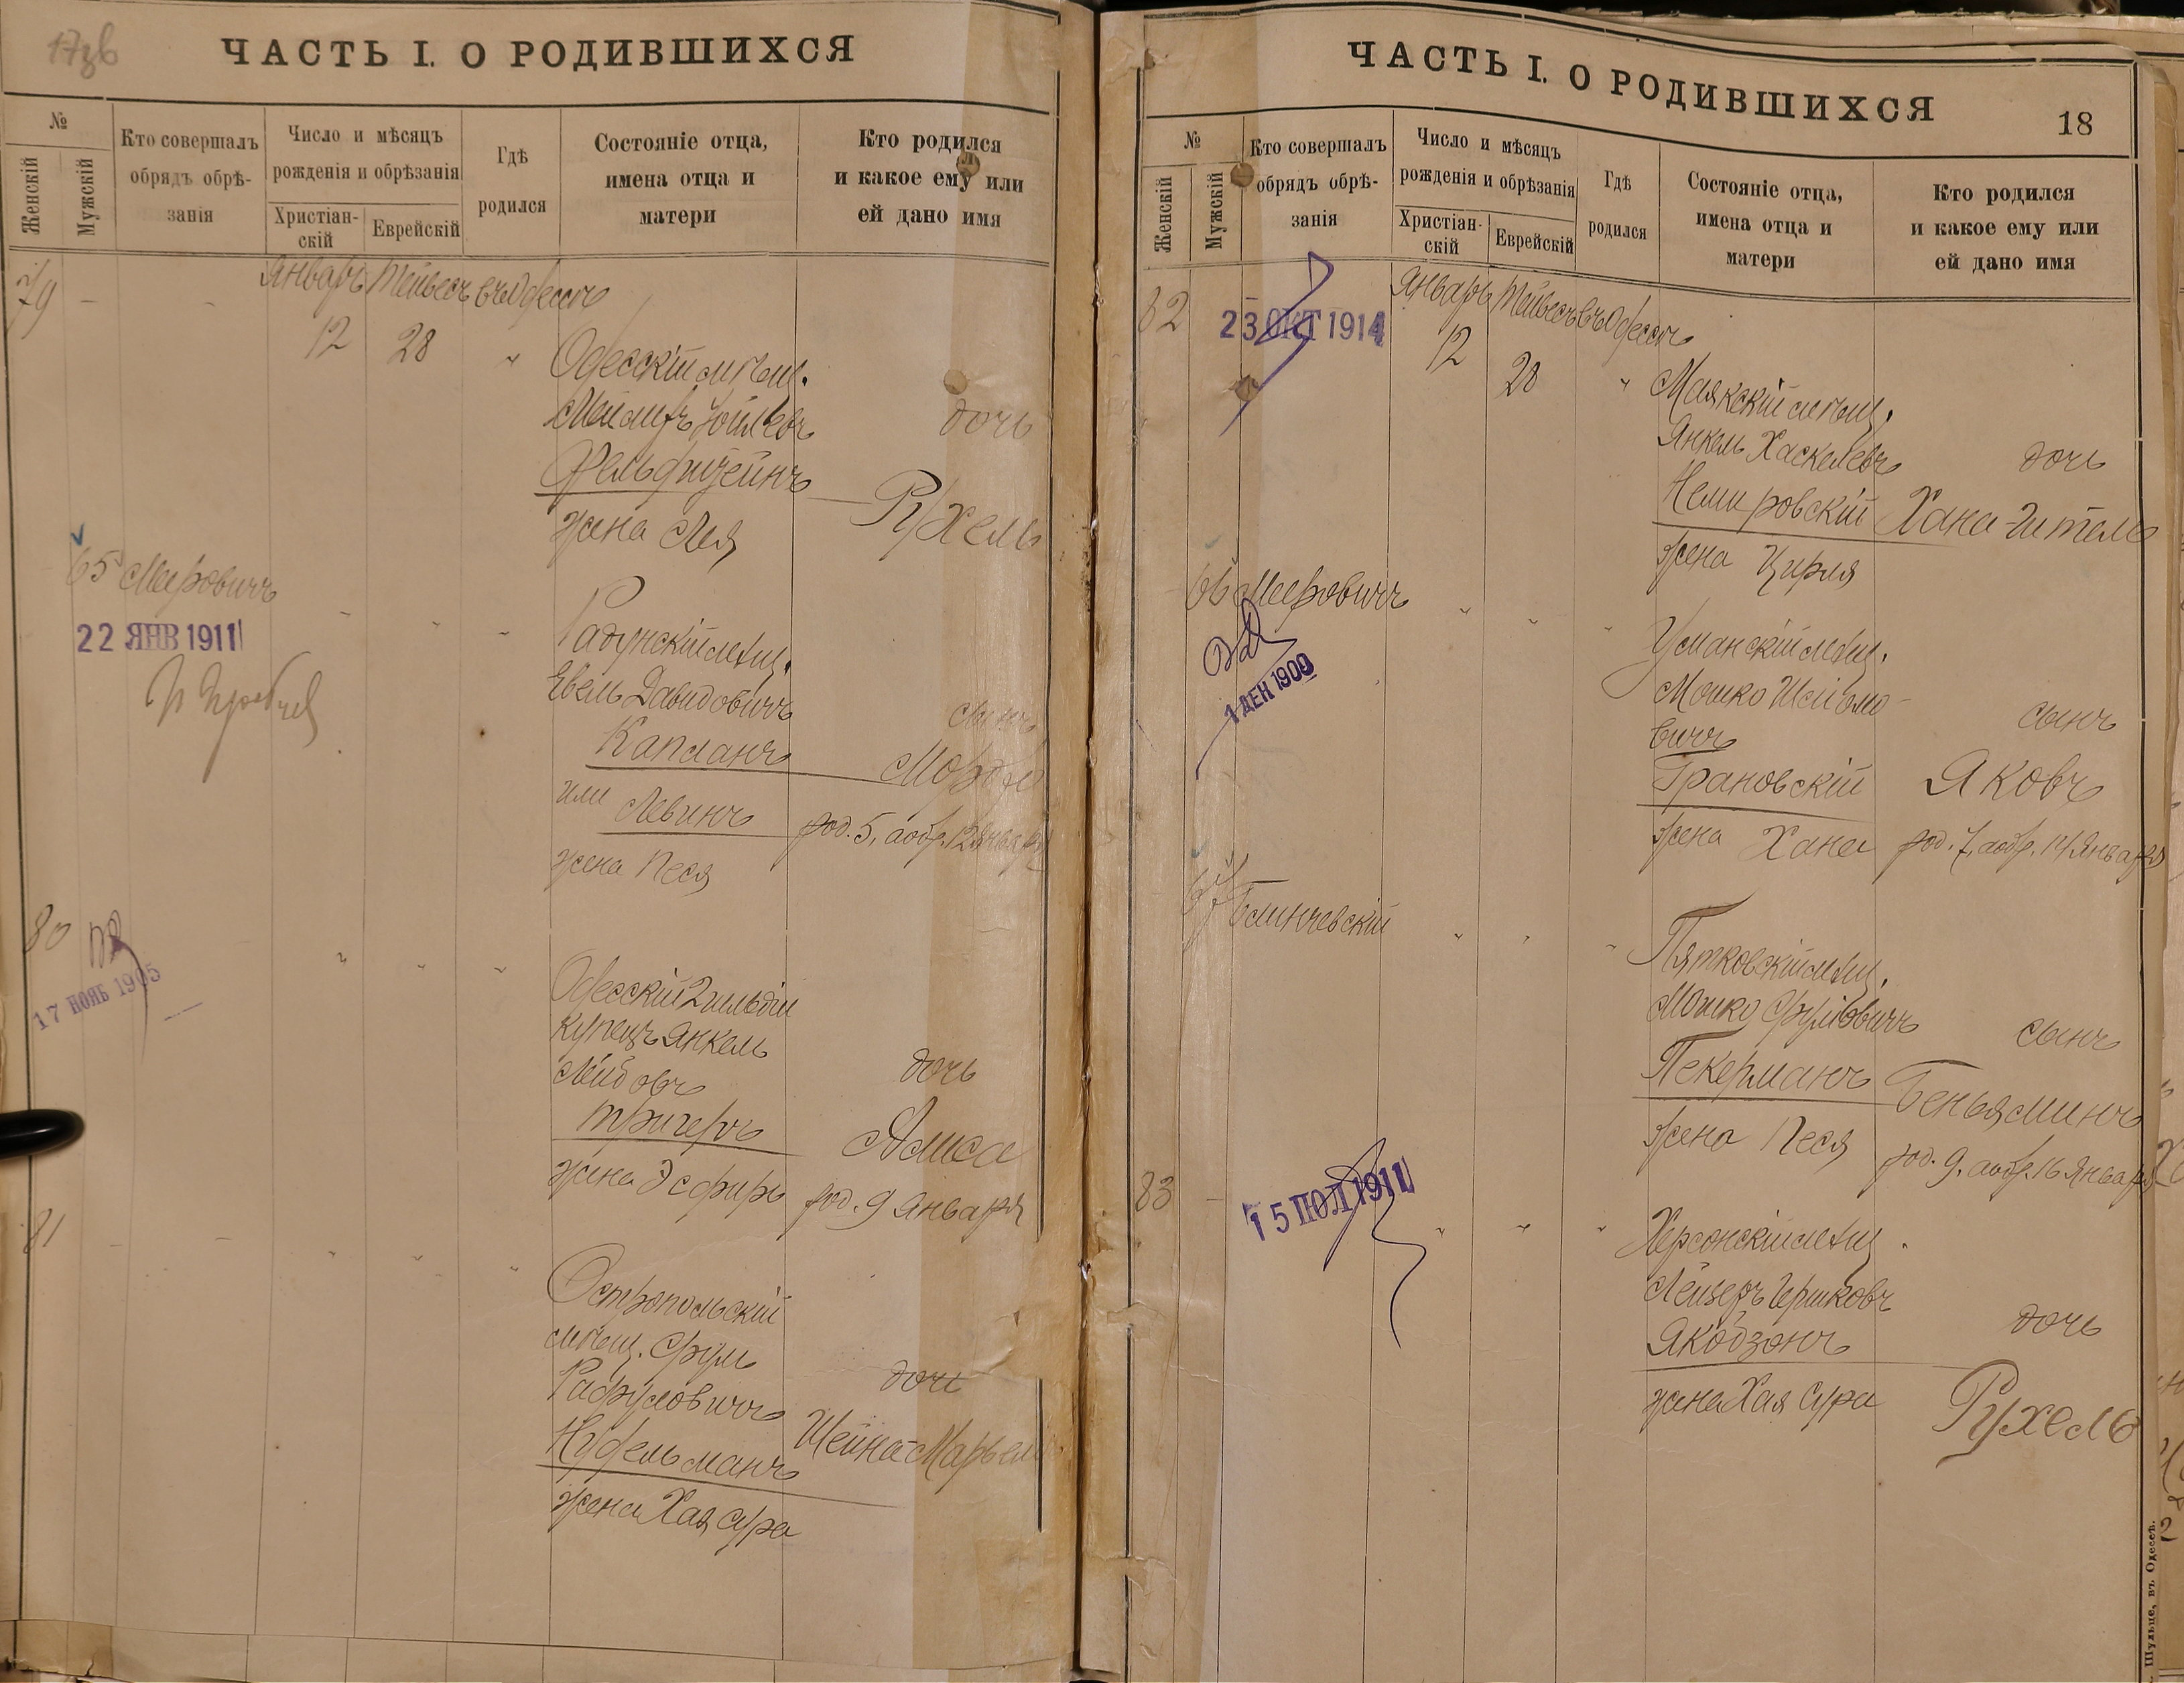 17зв
ЧАСТЬ I. О РОДИВШИХСЯ
№
Женскій
Мужскій
Кто совершалъ
обрядъ обрѣ-
занія
Число и мѣсяцъ
рожденія и обрѣзанія
Христіан-
скій
Еврейскій
Гдѣ
родился
Состояніе отца,
имена отца и
матери
Кто родился
и какое ему или
ей дано имя
79 - - Январь Тейвесъ въ Одессѣ
12 28 " Одесскій мѣщ.
дочь
Фельдштейнъ
Рухель
жена Лея
65 Мееровичъ
22 ЯНВ 1911
Радунскій мѣщ.
Евель Давидовичъ
сынъ
Капланъ
Мордко
или Левинъ
род. 5, а обр. 12 Января
жена Песя
80
17 НОЯБ 1905
Одесскій 2 гильдіи
купецъ Янкель
Лейбовъ
дочь
Тригеръ
Алиса
жена Эсфирь
род. 9 Января
81 - - " " "
Остропольскій
мѣщ. Сруль
Рафуловичъ
дочь
Нудельманъ
Шейна-Марьем
жена Хая Сура
ЧАСТЬ I. О РОДИВШИХСЯ
18
№
Женскій
Мужскій
Кто совершалъ
обрядъ обрѣ-
занія
Число и мѣсяцъ
рожденія и обрѣзанія
Христіан-
скій
Еврейскій
Гдѣ
родился
Состояніе отца,
имена отца и
матери
Кто родился
и какое ему или
ей дано имя
82 - Январь Тейвесъ въ Одессѣ
23 ОКТ 1914
12 28 " Маякскій мѣщ.
Янкель Хаскелевъ
дочь
Немировскій
Хана-Гитель
жена Цирля
66 Мееровичъ " " "
1 ДЕН 1909
Уманскій мѣщ.
Мошко Шейомо-
вичъ
сынъ
Грановскій
Яковъ
жена Хана
род. 7, а обр. 14 Января
67 Блинчевскій " " "
Пятковскій мѣщ.
Мошко Сруловичъ
сынъ
Пекерманъ
Беньяминъ
жена Песя
род. 9, а обр. 16 Января
83 -
15 ПОЛ 1911
" " "
Херсонскій мѣщ.
Лейзеръ Гершковъ
дочь
Якобзонъ
жена Хая Сура
Рухель
Шульце, въ Одессѣ.